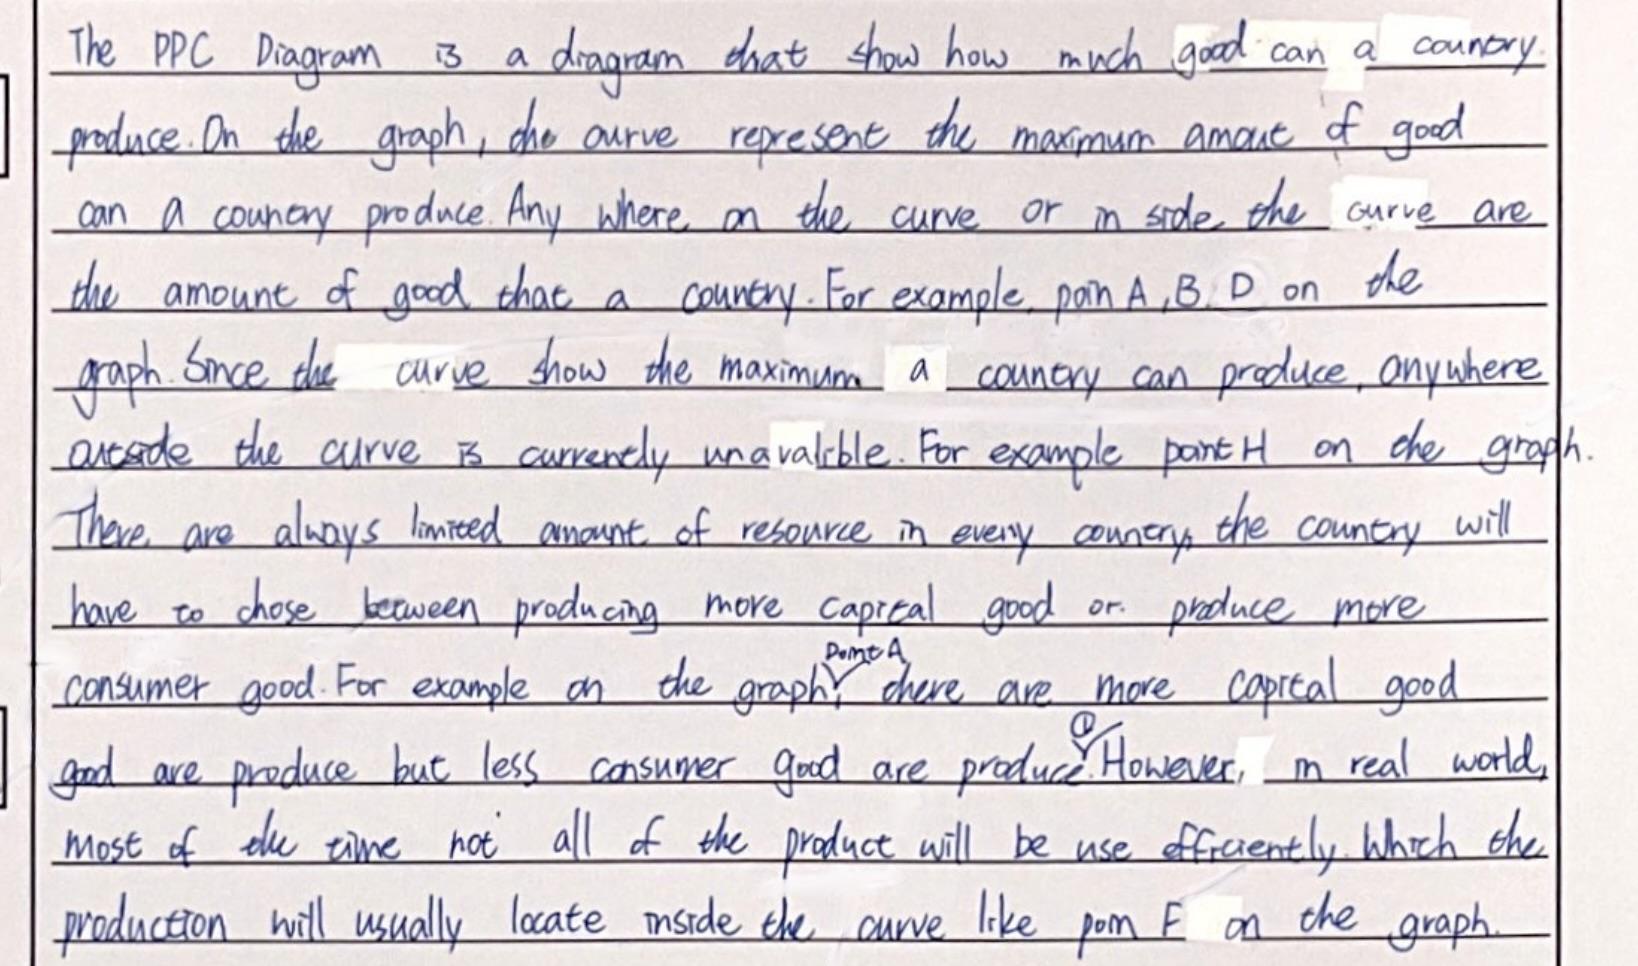 The PPC Diagram is a diagram that show how much good can a country
produce. On the graph, the curve represent the maximum amout of good
can a country produce. Any where on the curve or in side the curve are
the amount of good that a country. For example, poin A, B, D on the
graph. Since the curve show the maximum a country can produce, anywhere
outside the curve is currently unavalible. For example point H on the graph.
There are always limited amount of resource in every country, the country will
have to chose between producing more capital good or produce more
Point A
consumer good. For example on the graph, there are more capital good
①
good are produce but less consumer good are produce. However, in real world,
most of the time not all of the product will be use efficiently. Which the
production will usually locate inside the curve like poin F on the graph.